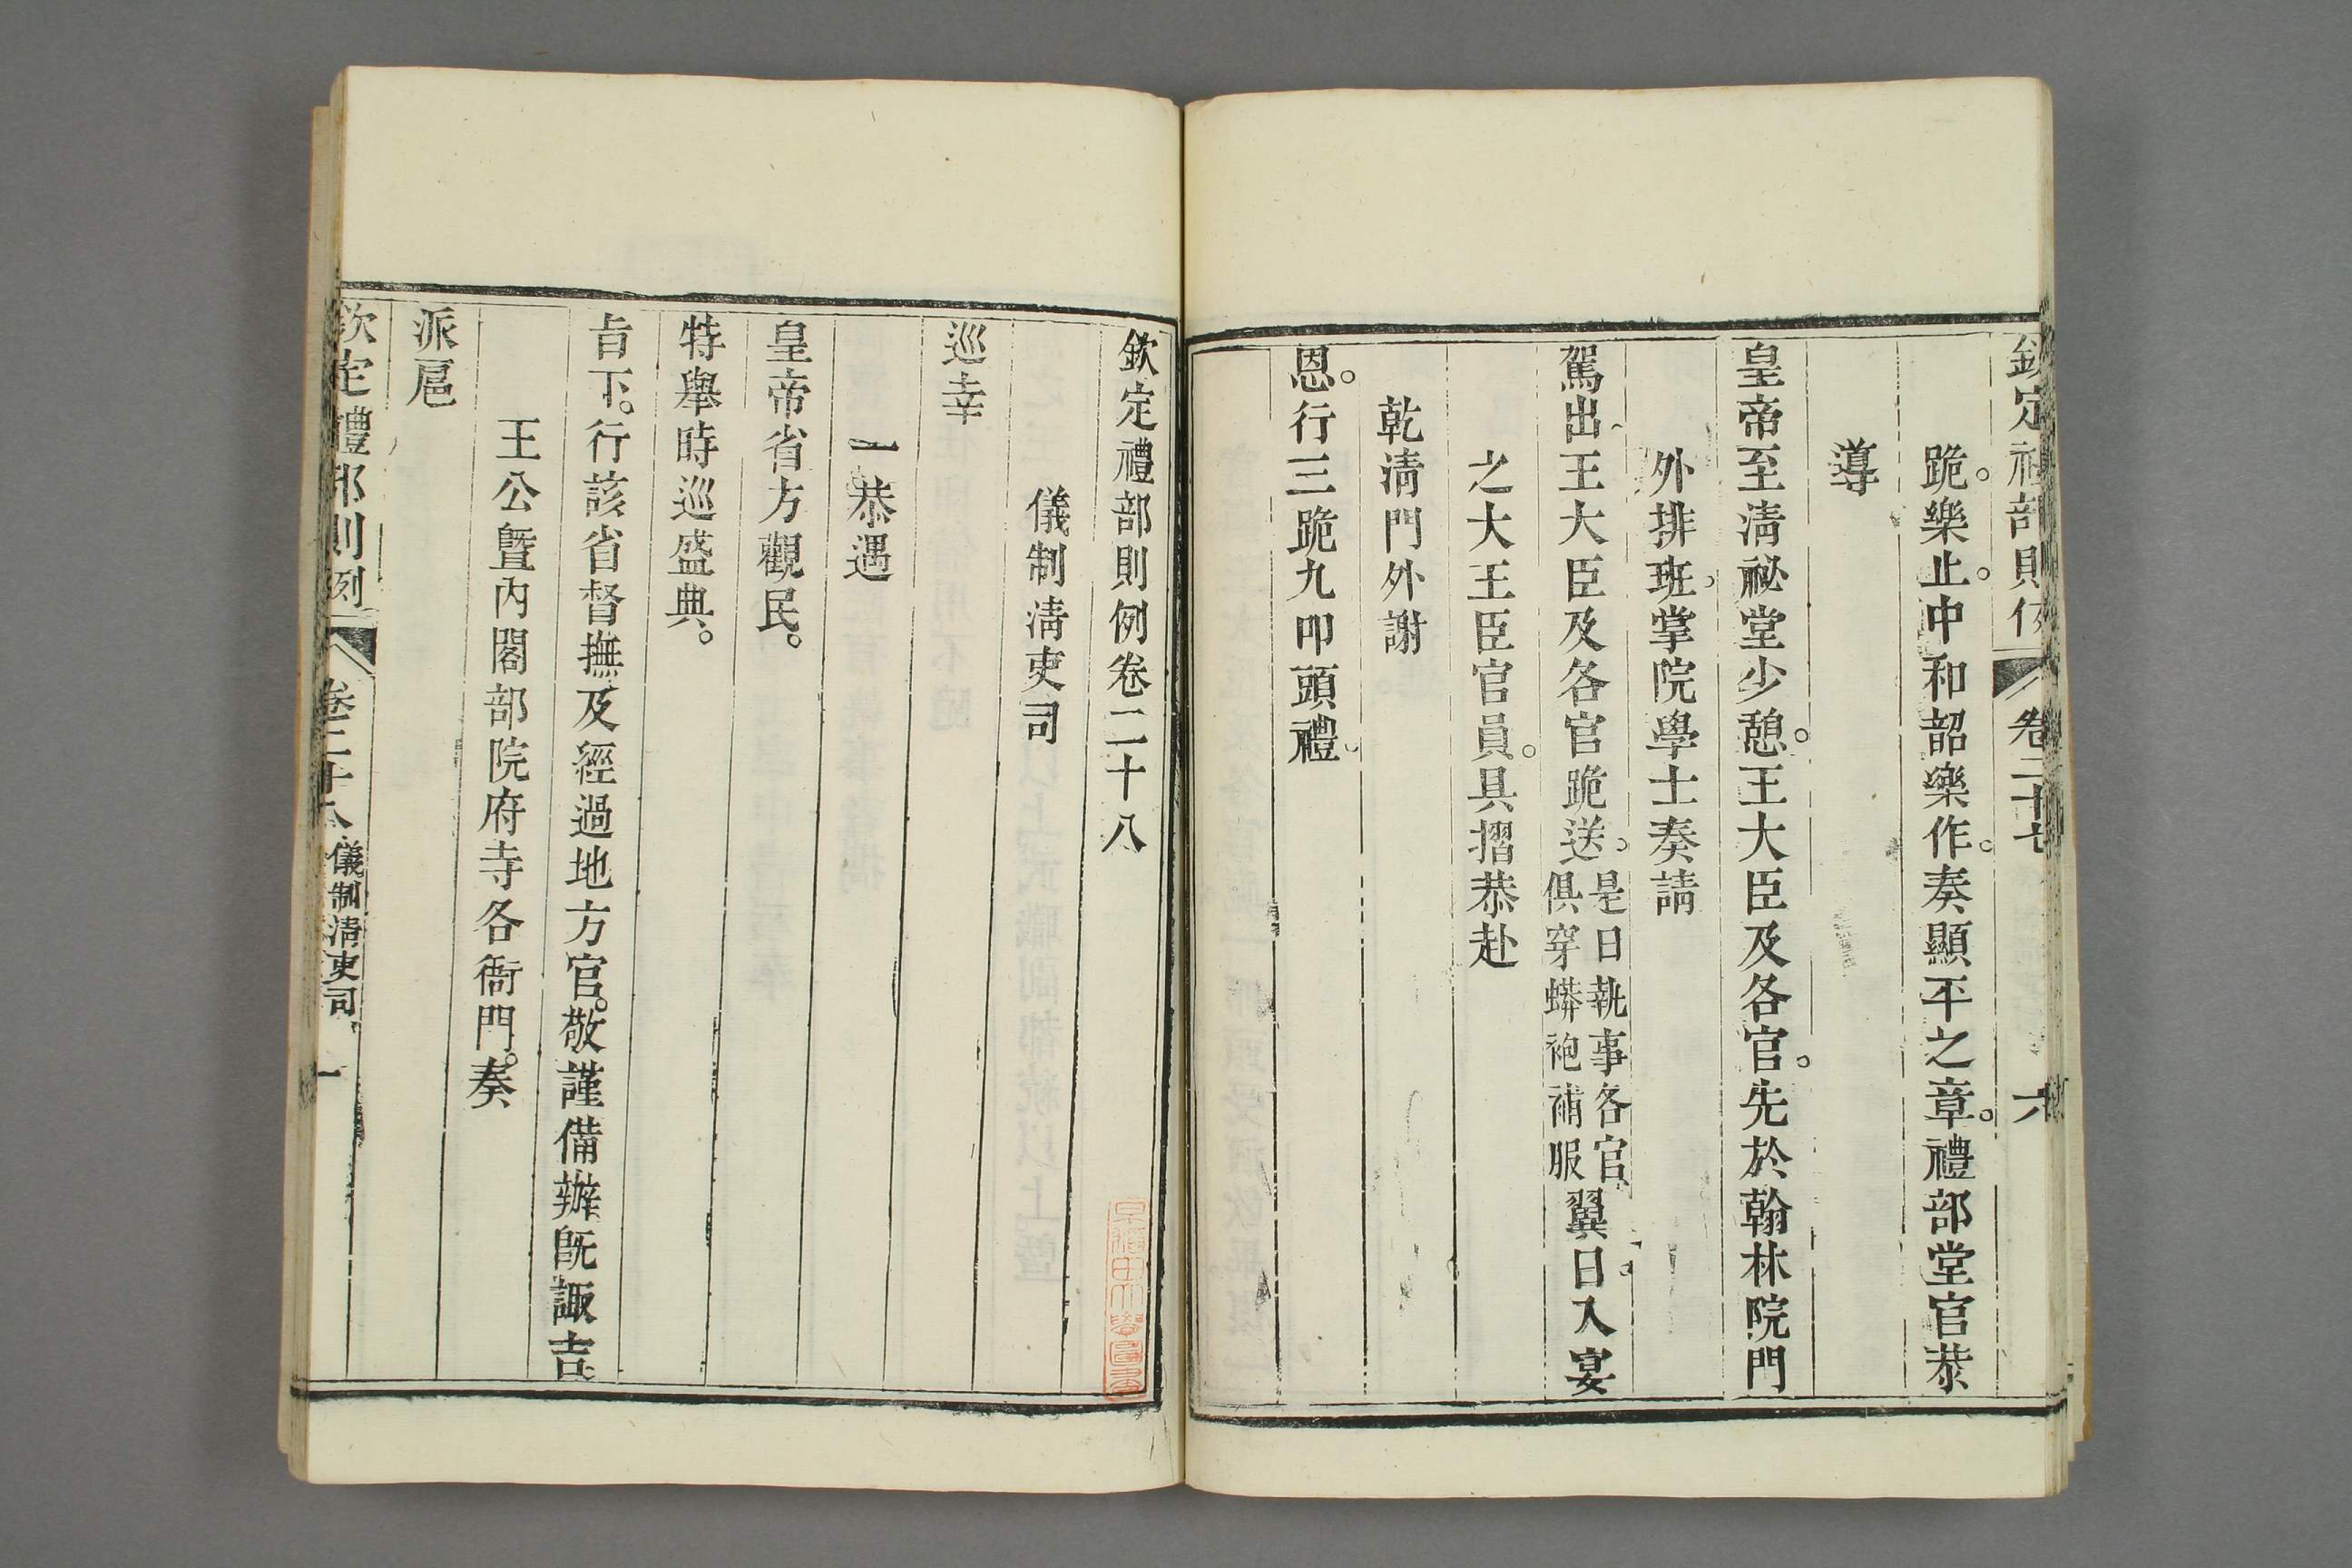 欽定禮部則例 卷二十七 六
跪。樂止。中和韶樂作。奏顯平之章。禮部堂官恭
導
皇帝至淸祕堂少憩。王大臣及各官。先於翰林院門
外排班。掌院學士奏請
駕出、王大臣及各官跪送。是日執事各官俱穿蟒袍補服翼日。入宴
之大王臣官員。具摺恭赴
乾淸門外謝
恩。行三跪九叩頭禮。
欽定禮部則例卷二十八
儀制淸吏司
巡幸
一恭遇
皇帝省方觀民。
特舉時巡盛典。
旨下。行該省督撫及經過地方官。敬謹備辦旣諏吉。
王公暨內閣部院府寺各衙門。奏
派扈
欽定禮部則例 卷二十八 儀制淸吏司 一
早稻田大學圖書